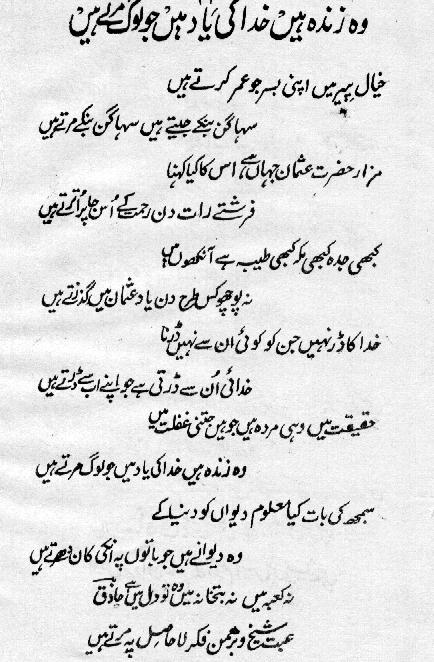 وہ زندہ ہیں خدا کی یاد میں جو لوگ مرتے ہیں
خیال پیر میں اپنی بسر جو عمر کرتے ہیں
سہاگن بنکے جیتے ہیں سہاگن بنکے مرتے ہیں
مزار حضرت عثمان جہاں ہے، اس کا کیا کہنا
فرشتے رات دن رحمت کے اُس جا پر اُترتے ہیں
کبھی جدہ کبھی مکہ کبھی طیبہ ہے آنکھوں میں
نہ پوچھو کس طرح دن یاد عثمان میں گذرتے ہیں
خدا کا ڈر نہیں جن کو کوئی ان سے نہیں ڈرتا
خدائی اُن سے ڈرتی ہے جو اپنے اب سے ڈرتے ہیں
حقیقت میں وہی مردہ ہیں جو ہیں جتنی غفلت میں
وہ زندہ ہیں خدا کی یاد میں جو لوگ مرتے ہیں
سمجھ کی بات کیا معلوم دیواں کو دنیا کے
وہ دیوانے ہیں جو باتوں پہ انکی کان دھرتے ہیں
نہ کعبہ میں نہ بتخانہ میں وہ تو دل میں ہے حاذق
عبث شیخ و برہمن فکر لا حاصل پہ مرتے ہیں